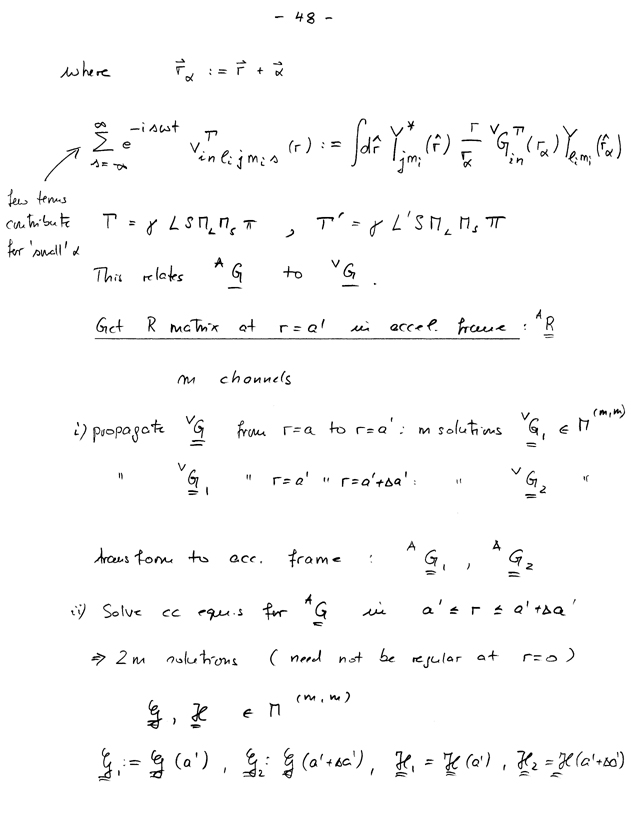 - 48 -
where $\vec{r}_\alpha := \vec{r} + \vec{\alpha}$
$\sum_{s=-\infty}^{\infty} e^{-is\omega t} \, V^{T}_{in l_i j m_i s}(r) := \int d\hat{r} \, Y^*_{j m_i}(\hat{r}) \frac{r}{r_\alpha} {}^V G^{T}_{in}(r_\alpha) Y_{l_i m_i}(\hat{r}_\alpha)$
few terms
contribute
for 'small' α
T = γ L S M_L M_S π , T' = γ L' S M_L M_S π
This relates ^A G to ^V G .
Get R matrix at r = a' in accel. frame : ^A R
m channels
i) propagate ^V G from r=a to r=a' : m solutions ^V G_1 ∈ M^{(m,m)}
" ^V G_1 " r=a' " r=a'+Δa' : " ^V G_2 "
transform to acc. frame : ^A G_1 , ^A G_2
ii) Solve cc equ.s for ^A G in a' ≤ r ≤ a'+Δa'
⇒ 2m solutions ( need not be regular at r=0 )
𝒢 , ℋ ∈ M^{(m,m)}
𝒢_1 := 𝒢(a') , 𝒢_2 : 𝒢(a'+Δa') , ℋ_1 = ℋ(a') , ℋ_2 = ℋ(a'+Δa')